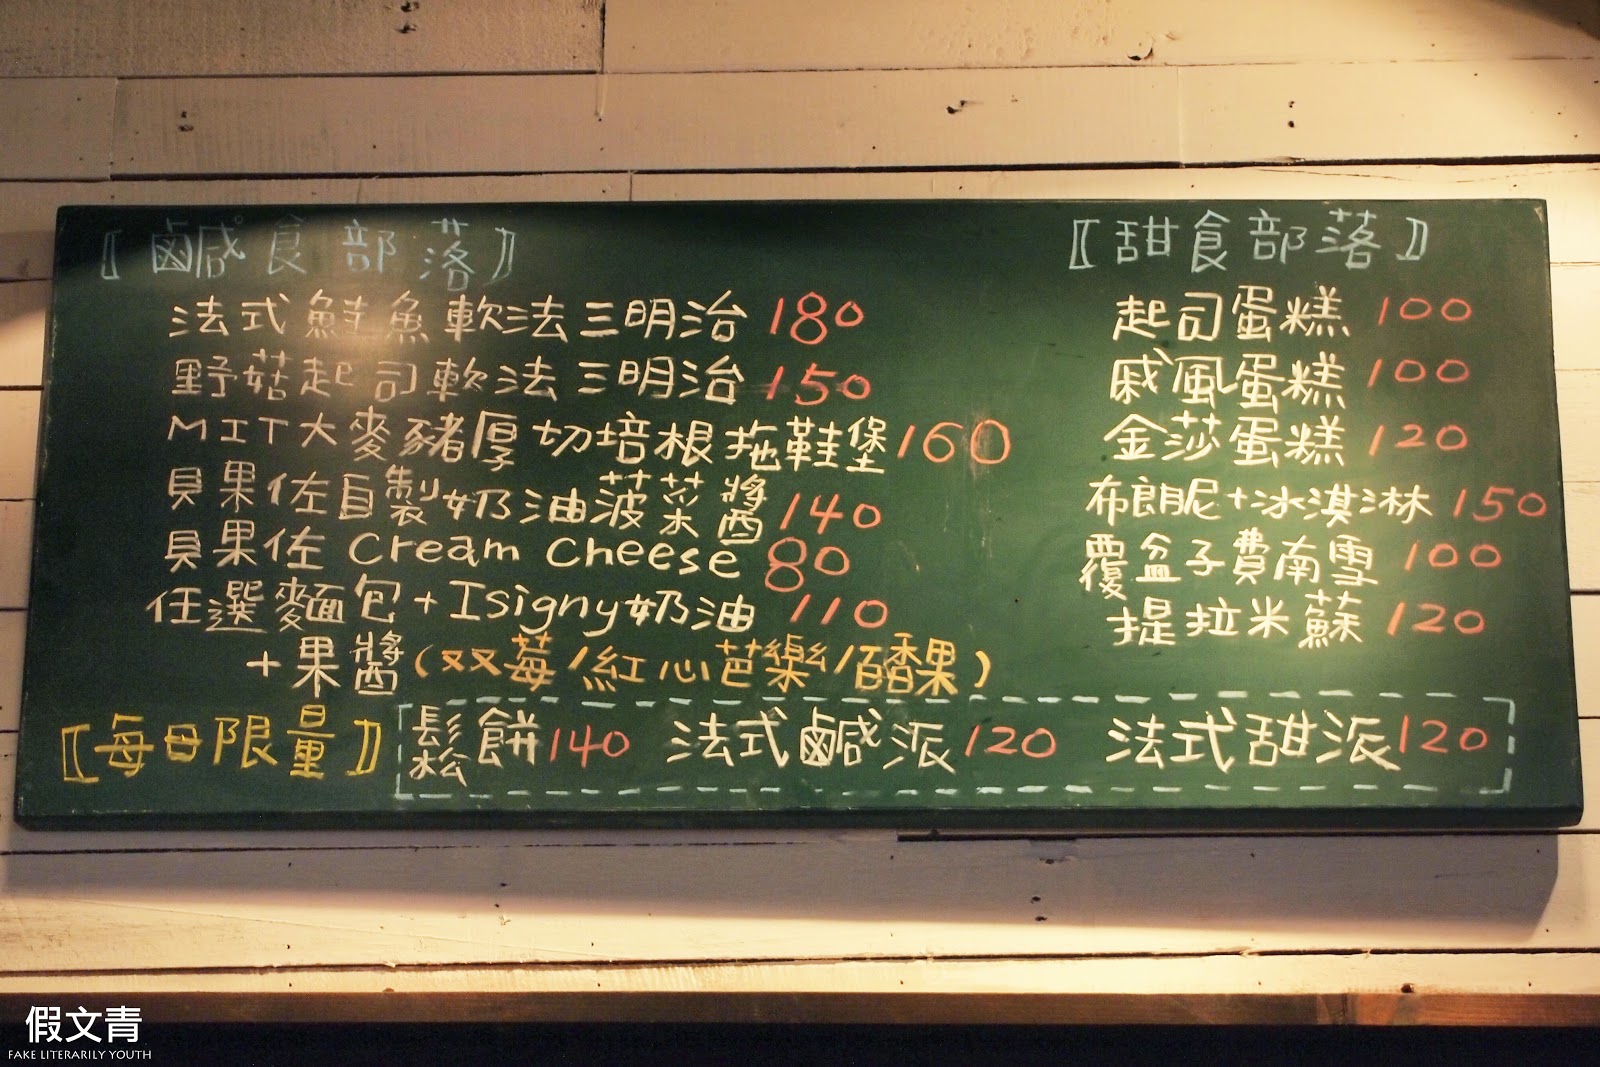 〖鹹食部落〗
法式鮭魚軟法三明治 180
野菇起司軟法三明治 150
MIT大麥豬厚切培根拖鞋堡 160
貝果佐自製奶油菠菜醬 140
貝果佐 Cream Cheese 80
任選麵包+Isigny奶油 110
+果醬(双莓/紅心芭樂/百香果)
〖甜食部落〗
起司蛋糕 100
戚風蛋糕 100
金莎蛋糕 120
布朗尼+冰淇淋 150
覆盆子費南雪 100
提拉米蘇 120
〖每日限量〗 鬆餅 140 法式鹹派 120 法式甜派 120
假文青
FAKE LITERARILY YOUTH